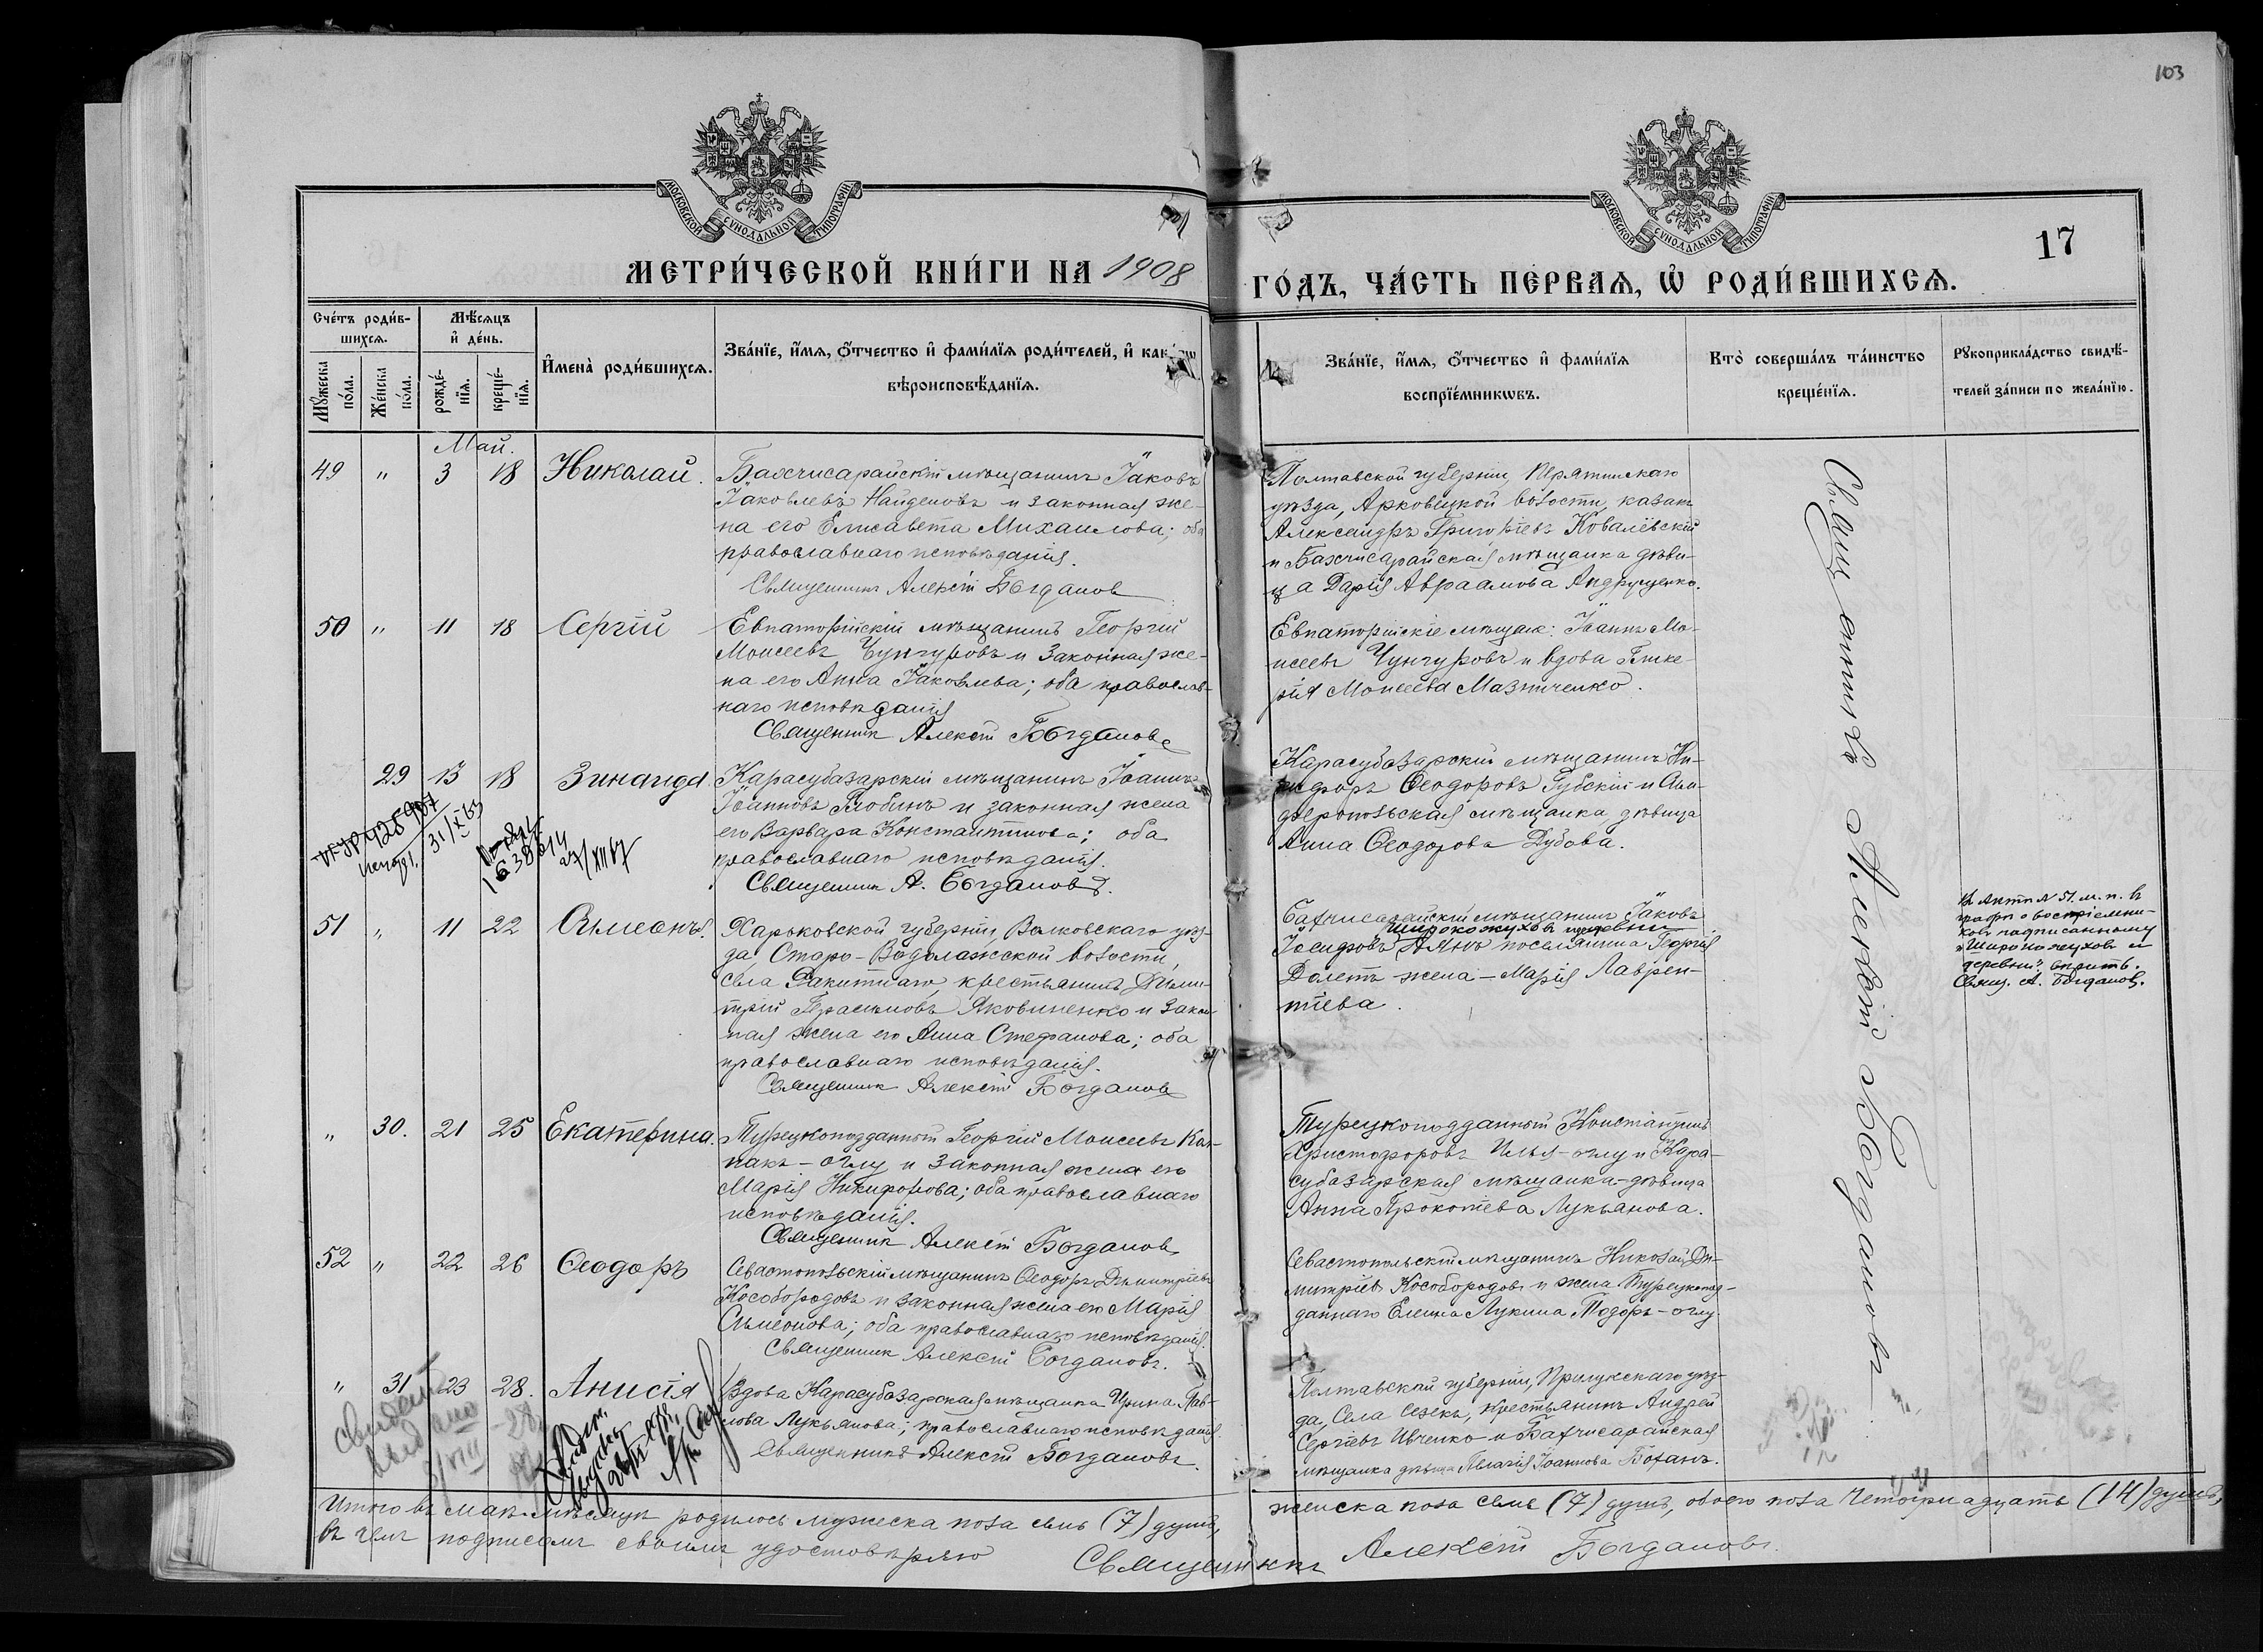 103
МОСКОВСКОЙ СѴНОДАЛЬНОЙ ТИПОГРАФІИ
МОСКОВСКОЙ СѴНОДАЛЬНОЙ ТИПОГРАФІИ
17
МЕТРИ́ЧЕСКОЙ КНИ́ГИ НА 1908
ГО́ДЪ, ЧА́СТЬ ПЕ́РВАѦ, Ѡ҆ РОДИ́ВШИХСѦ.
Сче́тъ роди́в-
шихсѧ.
Мѣ́сѧцъ
и҆ де́нь.
Мꙋ́жеска
по́ла.
Же́нска
по́ла.
рожде́-
нїѧ.
креще́-
нїѧ.
И҆мена̀ роди́вшихсѧ.
Зва́нїе, и҆́мѧ, ѻ҆́тчество и҆ фами́лїѧ роди́телей, и҆
вѣроисповѣ́данїѧ.
Зва́нїе, и҆́мѧ, ѻ҆́тчество и҆ фами́лїѧ
воспрїе́мникѡвъ.
Кто̀ соверша́лъ та́инство
креще́нїѧ.
Рꙋкоприкла́дство свидѣ́-
телей за́писи по жела́нїю.
Май.
49 " 3 18 Николай.
Бахчисарайскій мѣщанинъ Іаковъ
Іаковлевъ Найденовъ и законная же-
на его Елисавета Михаилова; оба
православнаго исповѣданія.
Священникъ Алексій Богданов
Полтавской губерніи, Пирятинскаго
уѣзда, волости, казакъ
Александръ Григоріевъ Ковалевскій
и Бахчисарайская мѣщанка дѣви-
ца Дарія Авраамова Андрущенко.
50 " 11 18 Сергій
Евпаторійскій мѣщанинъ Георгій
Моисеевъ Чунгуровъ и законная же-
на его Анна Іаковлева; оба православ-
наго исповѣданія
Священник Алексій Богданов
Евпаторійскіе мѣщане: Іоаннъ Мо-
исеевъ Чунгуровъ и вдова Глике-
рія Моисеева Мазниченко.
29 13 18 Зинаида
Карасубазарскій мѣщанинъ Іоаннъ
Іоанновъ Злобинъ и законная жена
его Варвара Константинова; оба
православнаго исповѣданія.
Священник А. Богданов.
31/XI 63
27/XII 67
Карасубазарскій мѣщанинъ Ни-
кифоръ Ѳеодоровъ Губскій и Сим-
феропольская мѣщанка дѣвица
Анна Ѳеодорова Дубова.
51 " 11 22 Сѵмеонъ.
Харьковской губерніи Валковскаго уѣз-
да Старо-Водолажской волости,
села Ракитнаго, крестьянинъ Дими-
трій Герасимовъ Яковиненко и закон-
ная жена его Анна Стефанова; оба
православнаго исповѣданія.
Священник Алексій Богданов
Бахчисарайскій мѣщанинъ Іаковъ
Широкожуховъ деревни
Іосифовъ поселянина Георгія
Долетъ жена - Марія Лаврен-
тіева.
Въ актѣ № 51. м. п. въ
графѣ о воспріемни-
ках надписанному
"Широкожухов и
деревни" вѣрить.
Свящ. А. Богданов.
" 30. 21 25 Екатерина.
Турецкоподданный Георгій Моисеевъ
-оглу и законная жена его
Марія Никифорова; оба православнаго
исповѣданія.
Священник Алексій Богданов
Турецкоподданный Константинъ
Христофоровъ Илья-оглу и Кара-
субазарская мѣщанка-дѣвица
Анна Прокопіева Лукьянова.
52 " 22 26 Ѳеодоръ
Севастопольскій мѣщанинъ Ѳеодоръ Димитріевъ
Кособородовъ и законная жена его Марія
Сѵмеонова; оба православнаго исповѣданія.
Священник Алексій Богдановъ.
Севастопольскій мѣщанинъ Николай Ди-
митріевъ Кособородовъ и жена Турецкопод-
даннаго Елена Лукина Тодоръ-оглу
" 31 23 28. Анисія
Вдова Карасубазарская мѣщанка Ирина Пав-
лова Лукьянова; православнаго исповѣданія.
Священникъ Алексій Богдановъ.
Полтавской губерніи, Прилукскаго уѣз-
да, села крестьянинъ Андрей
Сергіевъ Ивченко и Бахчисарайская
мѣщанка дѣвица Пелагія Іоаннова Боханъ.
Священникъ Алексій Богдановъ
Итого въ маѣ мѣсяцѣ родилось мужеска пола семь (7) душъ,
женска пола семь (7) душъ, обоего пола четырнадцать (14) душъ,
въ чемъ подписомъ своимъ удостовѣряю
Священникъ Алексій Богдановъ.